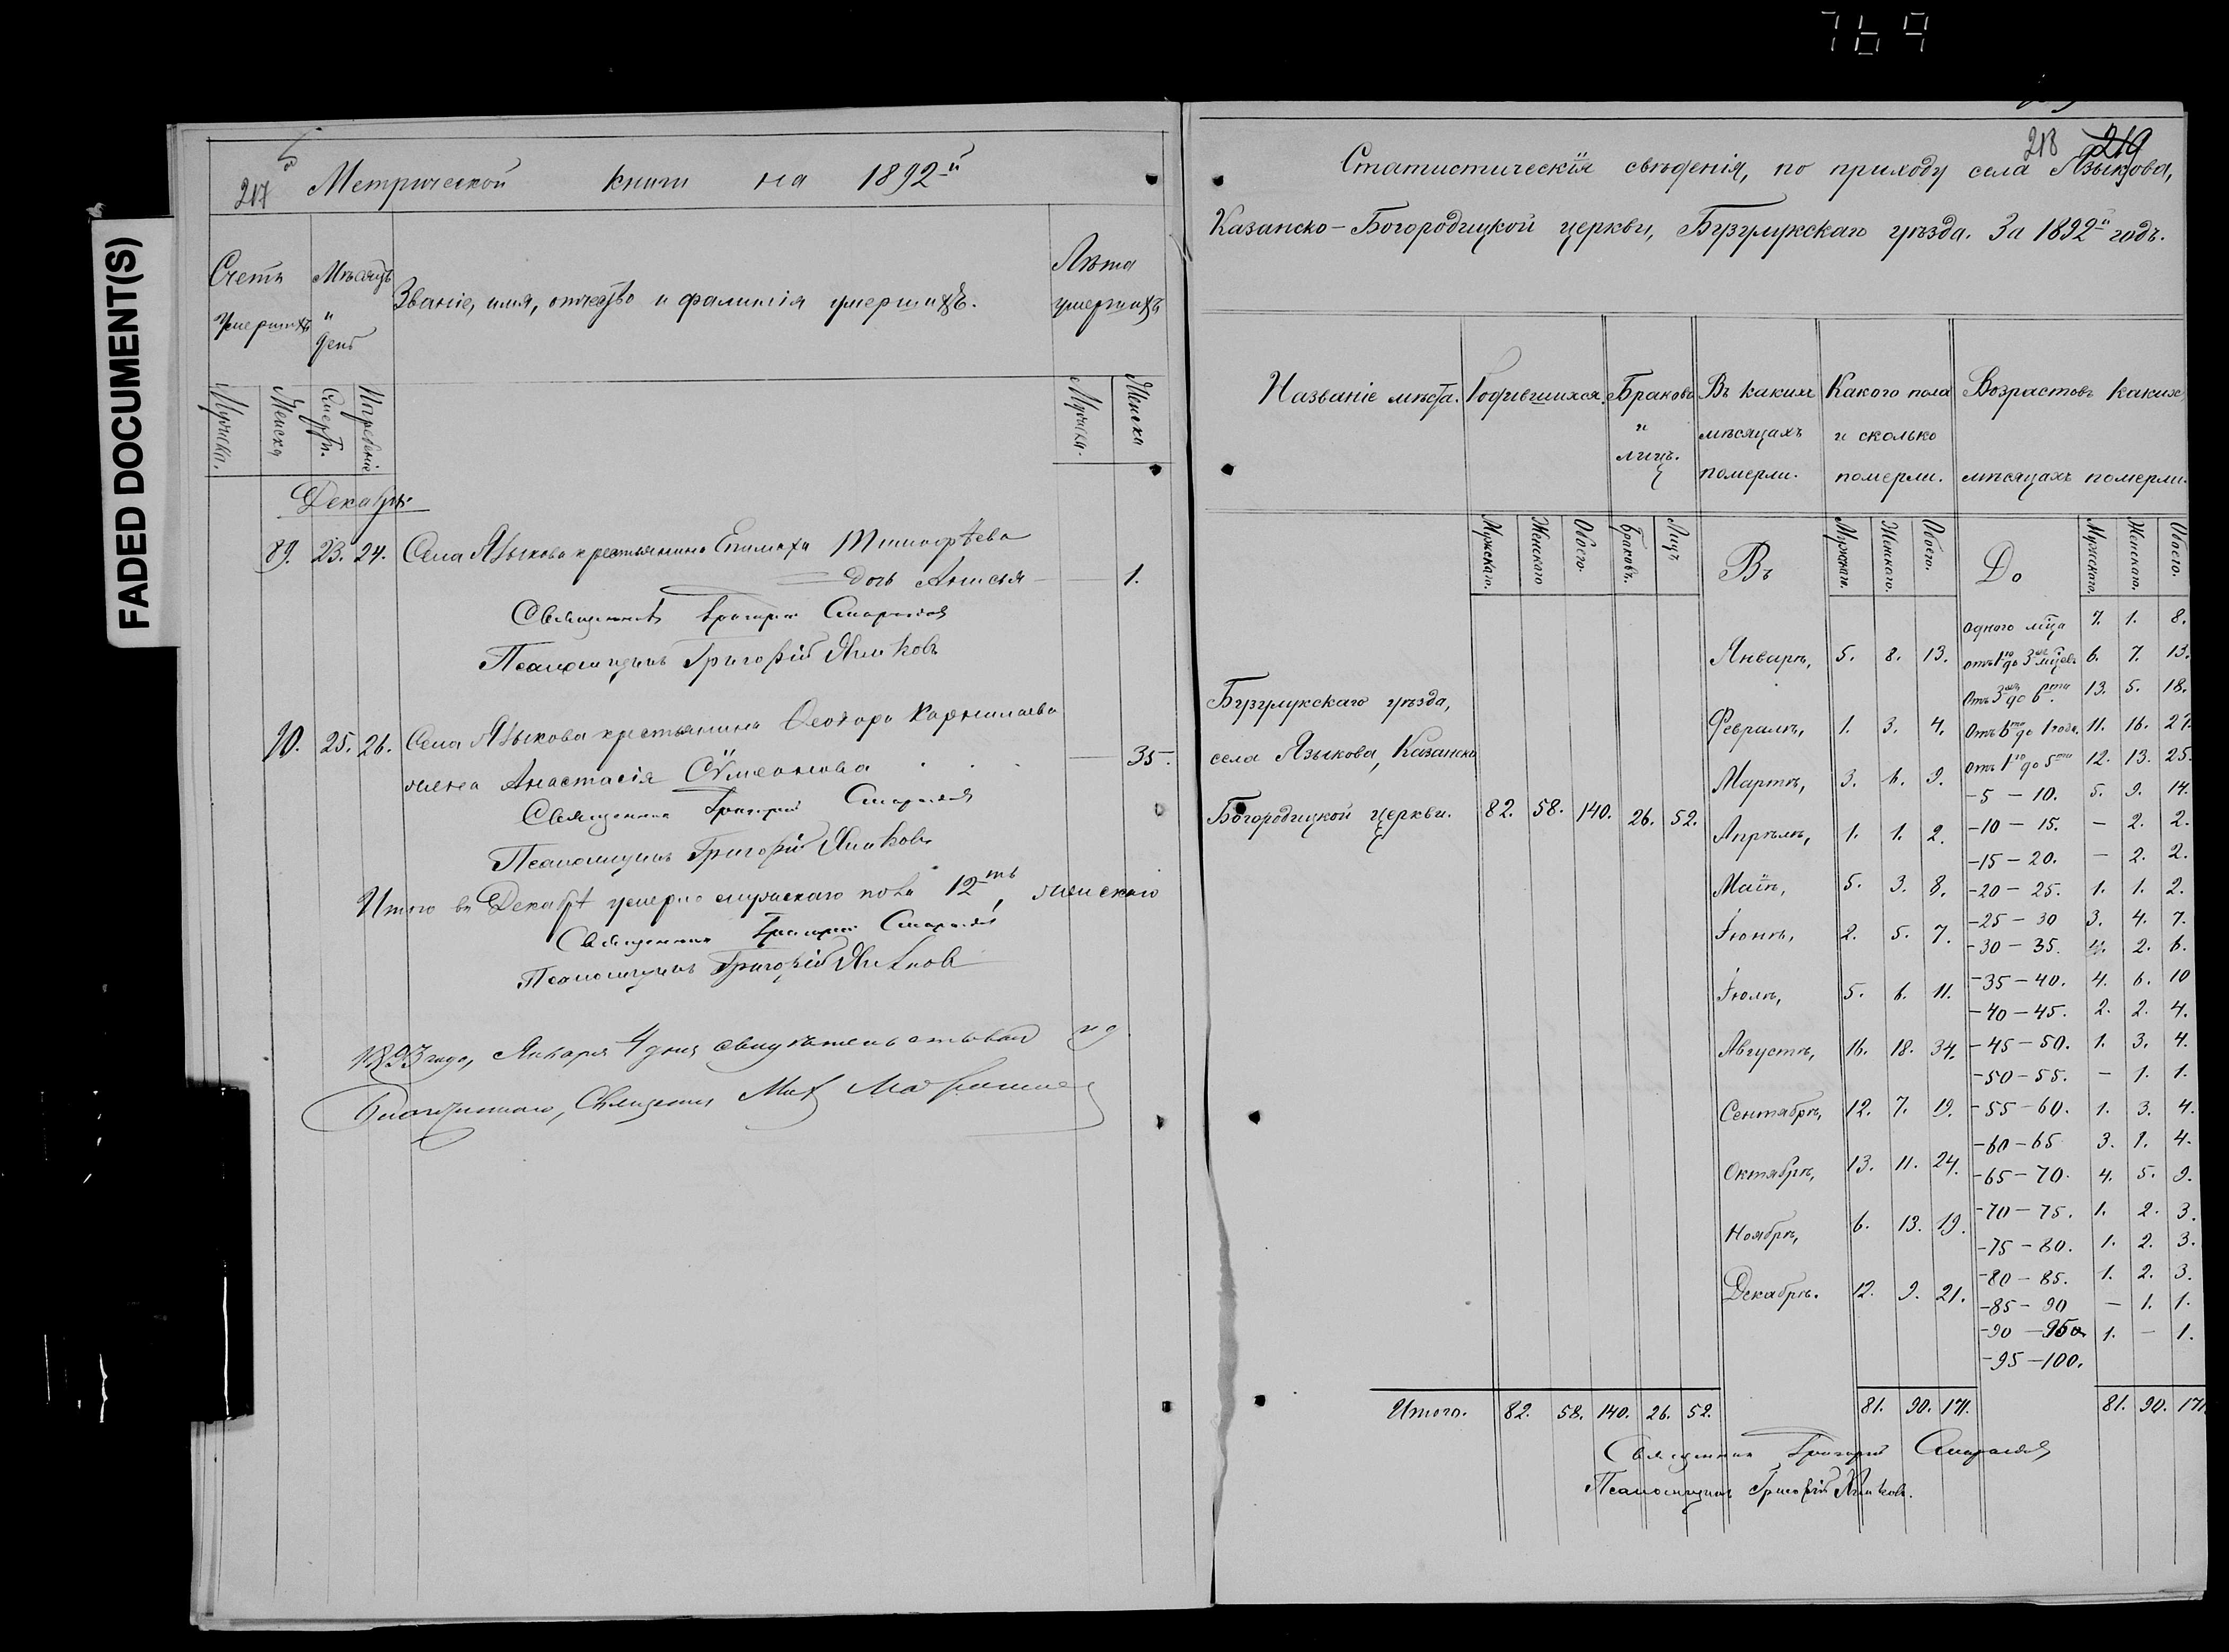 769
FADED DOCUMENT(S)
217
Метрической книги на 1892-й
Счетъ умершихъ
Мѣсяцъ и день
Званіе, имя, отчество и фамилія умершихъ.
Лѣта умершихъ
Мужска.
Женска
Смерти.
Погребенія
Мужска.
Женска
Декабрь
89. 23. 24. Села Языкова крестьянина Епимаха Тимофѣева
дочь Анисья 1.
Священникъ Григорій
Псаломщикъ Григорій
90. 25. 26. Села Языкова крестьянина Ѳеодора Корнилаева
жена Анастасія Сѷмеонова 35.
Священникъ Григорій
Псаломщикъ Григорій
Итого въ Декабрѣ умерло мужскаго пола 12-ть, женскаго
Священникъ Григорій
Псаломщикъ Григорій
1893 года, Января 4 дня свидѣтельствовал
Благочиннаго, Священникъ Мих
218 219
Статистическія свѣденія, по приходу села Языкова,
Казанско-Богородицкой церкви, Бузулукскаго уѣзда. За 1892й годъ.
Названіе мѣста.
Родившихся.
Браковъ и лицъ.
Въ какихъ мѣсяцахъ померли.
Какого пола и сколько померли.
Возрастовъ какихъ мѣсяцахъ померли.
Мужскаго.
Женскаго
Обоего.
Браковъ.
Лицъ
Въ
Мужскаго.
Женскаго.
Обоего.
До
Мужскаго.
Женскаго.
Обоего.
Бузулукскаго уѣзда,
села Языкова, Казанско
Богородицкой церкви. 82. 58. 140. 26. 52.
Январѣ, 5. 8. 13.
Февралѣ, 1. 3. 4.
Мартѣ, 3. 6. 9.
Апрѣлѣ, 1. 1. 2.
Маѣ, 5. 3. 8.
Іюнѣ, 2. 5. 7.
Іюлѣ, 5. 6. 11.
Августѣ, 16. 18. 34.
Сентябрѣ, 12. 7. 19.
Октябрѣ, 13. 11. 24.
Ноябрѣ, 6. 13. 19.
Декабрѣ. 12. 9. 21.
одного мца 7. 1. 8.
отъ 1го до 3хъ мцевъ 6. 7. 13.
Отъ 3хъ до 6ти 13. 5. 18.
Отъ 6ти до 1 года. 11. 16. 27.
отъ 1го до 5ти 12. 13. 25.
-5 - 10. 5. 9. 14.
-10 - 15. - 2. 2.
-15 - 20. - 2. 2.
-20 - 25. 1. 1. 2.
-25 - 30 3. 4. 7.
-30 - 35. 4. 2. 6.
-35 - 40. 4. 6. 10
-40 - 45. 2. 2. 4.
-45 - 50. 1. 3. 4.
-50 - 55. - 1. 1.
-55 - 60. 1. 3. 4.
-60 - 65 3. 1. 4.
-65 - 70. 4. 5. 9.
-70 - 75. 1. 2. 3.
-75 - 80. 1. 2. 3.
-80 - 85. 1. 2. 3.
-85 - 90 - 1. 1.
-90 - 95 1. - 1.
-95 - 100.
Итого. 82. 58. 140. 26. 52. 81. 90. 171. 81. 90. 171
Священникъ Григорій
Псаломщикъ Григорій